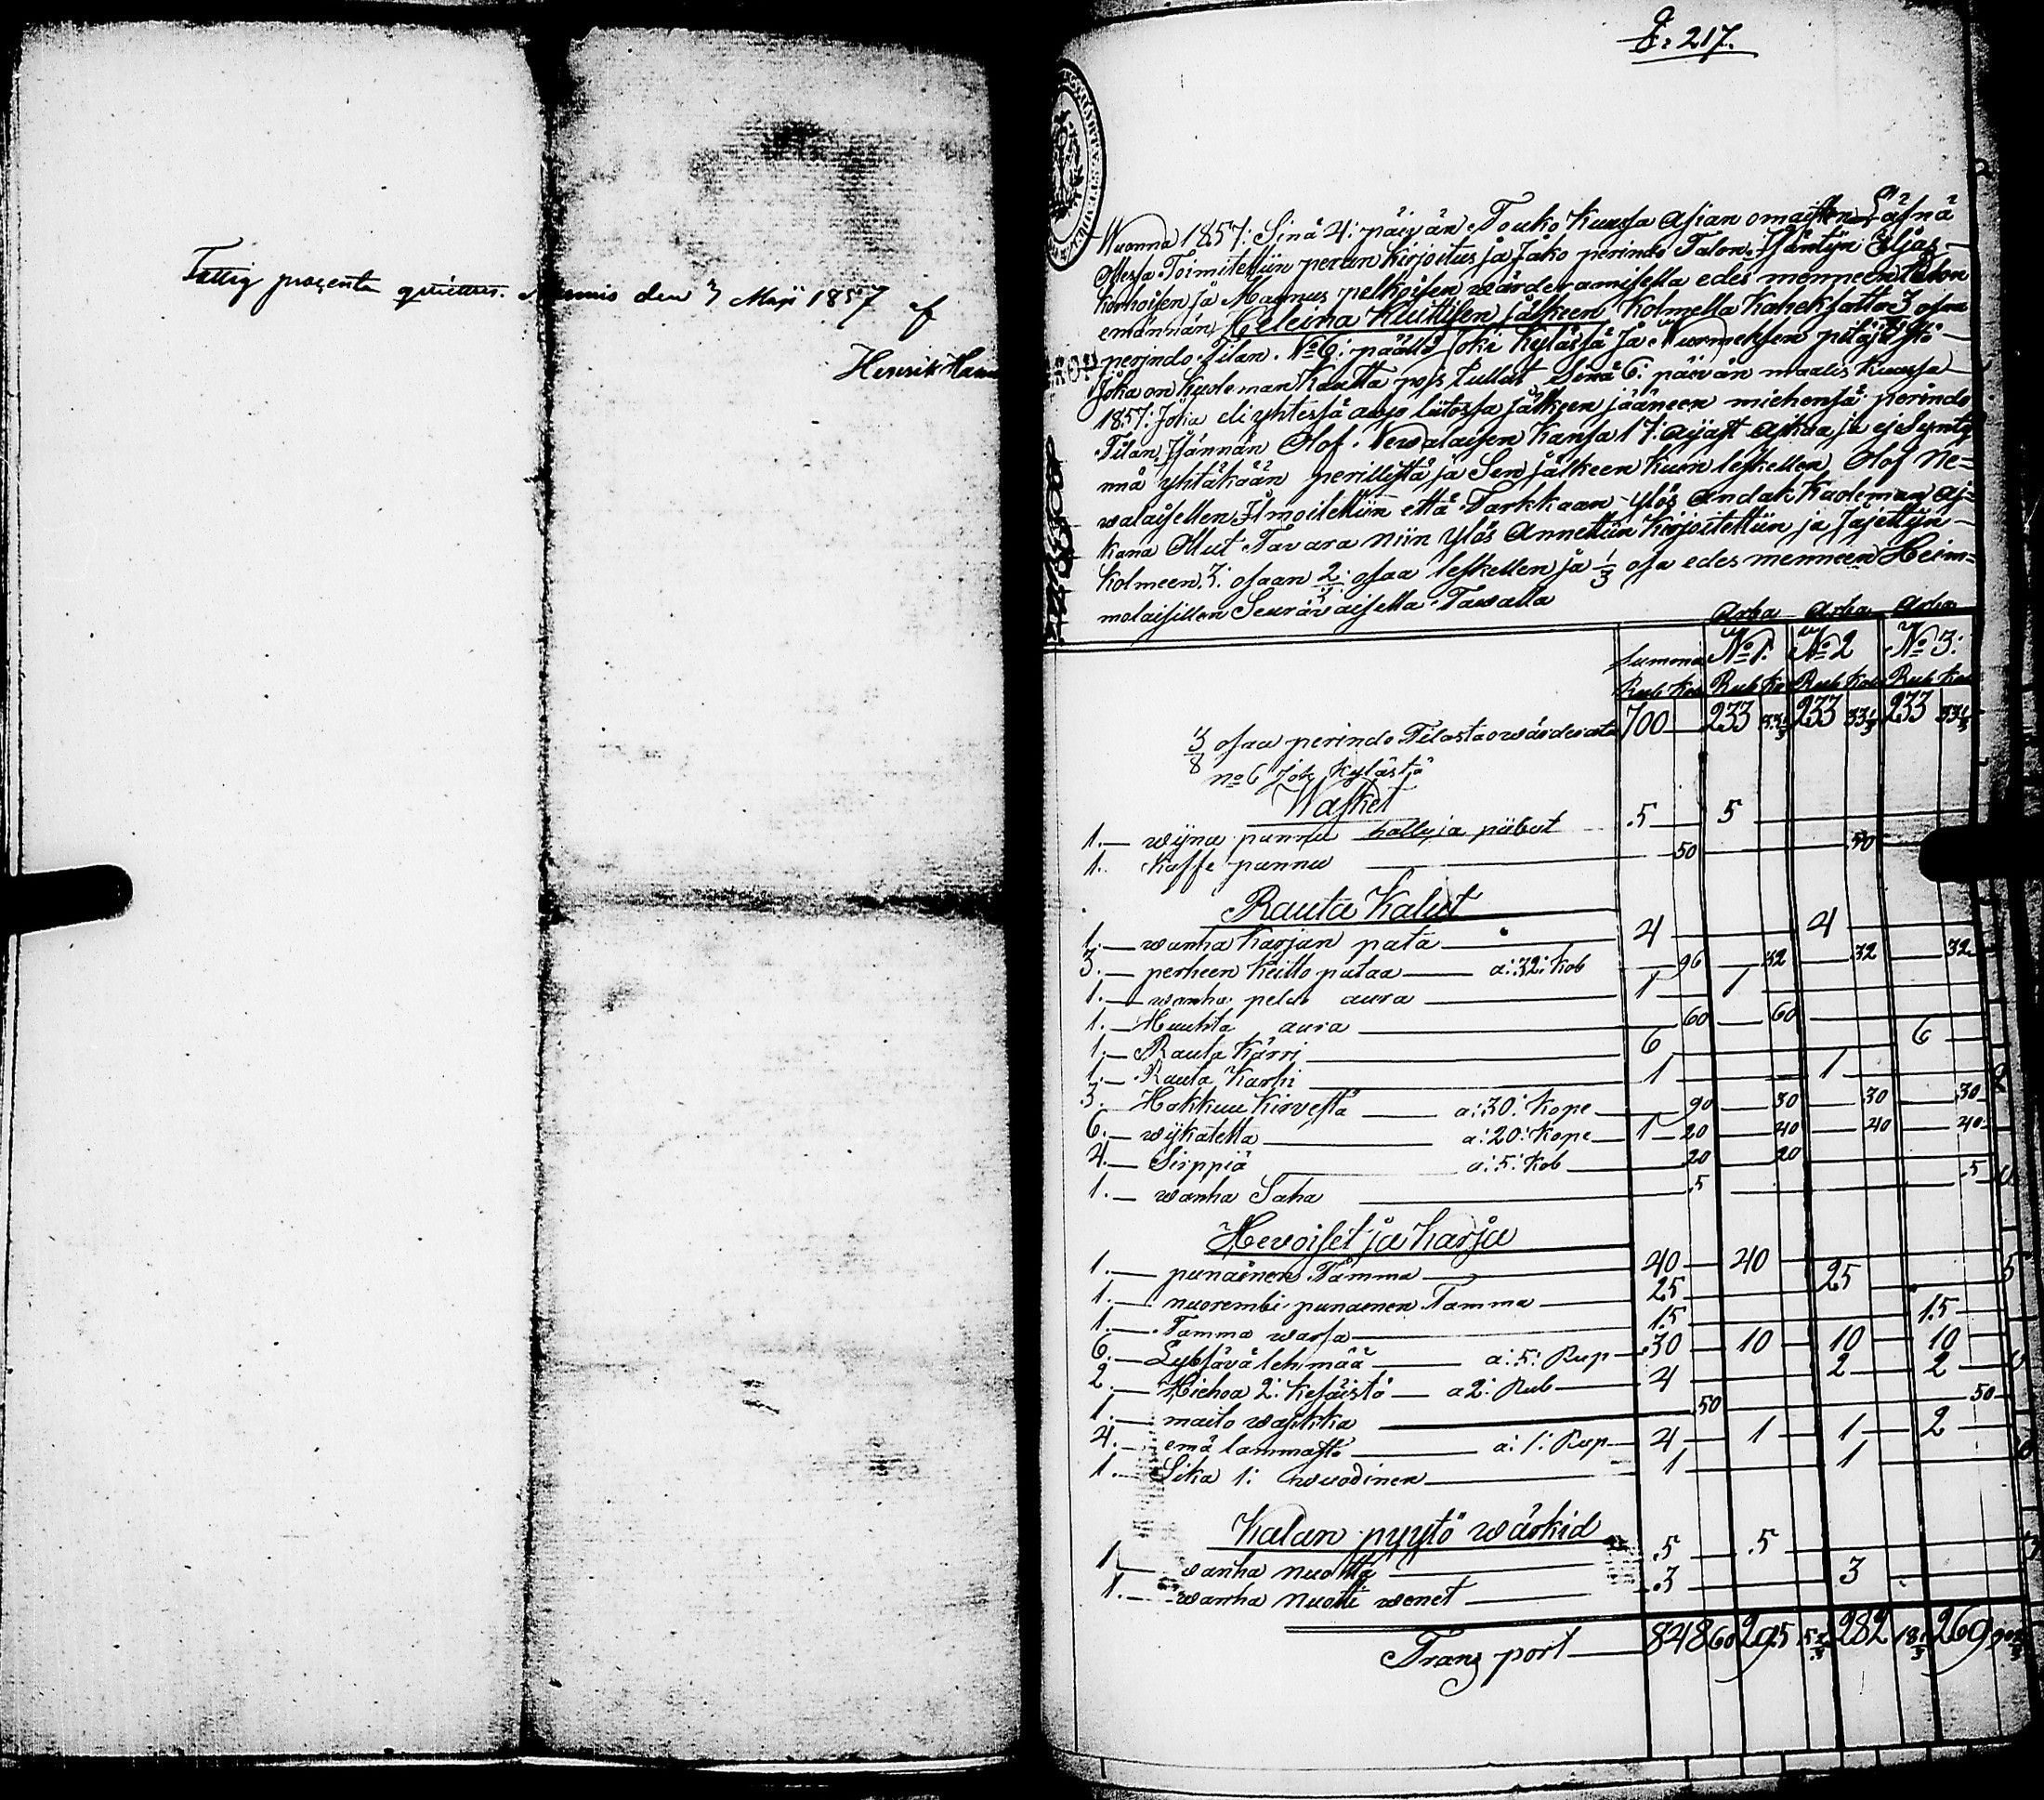 Fattig procenten qvitteras. Nurmis den 7 Maji 1857 af
Henrik
217.
Wuonna 1857: Sinä 4: päivän Touko Kuussa Asian omaisten Läsnä
Ollessa Toimitettiin perun Kirjoitus ja Jako perindo Talon Isäntijn Eljas
Korhoisen ja Magnus pelkoisen wärderamisella edes menneen Talon
emännän Heleina Kuittisen jälkeen Kolmella Kaheksatta 3 osan
perindo Tilan No 6: päällä Joki Kylässä ja Nurmeksen pitäjästä
Joka on Kuoleman Kautta pois Tullut Sinä 6: päivän maalis Kuussa
1857: Joka eli yhtessä awjo liitossa jälkeen jääneen miehensä perindo
Tilan Isännän Olof Newalaisen Kansa 17: Ajast ajkaa ja ej Synty
nnä yhtäkään perillistä ja Sen jälkeen Kuin leskellen Olof Ne=
walaisellen Ilmoitettiin että Tarkkaan Ylös andak Kuoleman aj=
kana Ollut Tavara niin Ylös Annettiin Kirjoitettiin ja Jajettijn
Kolmeen 3: osaan 2: osaa leskellen ja 1/3 osa edes menneen Heim=
molaisillen Seuravaisella Tawalla
Arba Arba Arba
Summa No 1: No 2 No 3:
Rub Kop Rub Kop Rub Kop Rub Kop
3/8 osaa perindo Tilasta wärderattu 700 233 33 1/3 233 33 1/3 233 33 1/3
No 6 Joki Kylästä
Wasket
1. wijna pannu hattu ja piibut 5 5
1. Kaffe pannu 50 50
Rauta Kalut
1. wanha Karjan pata 4 4
3. perheen Keitto pataa a: 32: Kob 96 32 32 32
1. wanha peldo aura 1 1
1. Huuhta aura 60 60
1. Rauta Kärri 6 6
1. Rauta Karhi 1 1
3. Hakkuu Kirvestä a: 30: Kope 90 30 30 30
6. wijkatetta a: 20: Kope 1 20 40 40 40
4. Sirppiä a: 5: Kob 20 20
1. wanha Saha 5 5
Hevoiset ja Karja
1. punainen Tamma 40 40
1. nuorembi punainen Tamma 25 25
1. Tamma warsa 15 15
6. Lybsävä lehmää a: 5: Rup 30 10 10 10
2. Hiehoa 2: Kesäistä a 2: Rub 4 2 2
1. maito wasikka 50 50
4. emä lammasta a: 1: Rup 4 1 1 2
1. Sika 1: wuodinen 1 1
Kalan pyytö wärkid
1. wanha nuotta 5 5
1. wanha nuotti wenet 3 3
Transport 848 60 295 5 1/3 282 18 1/3 269